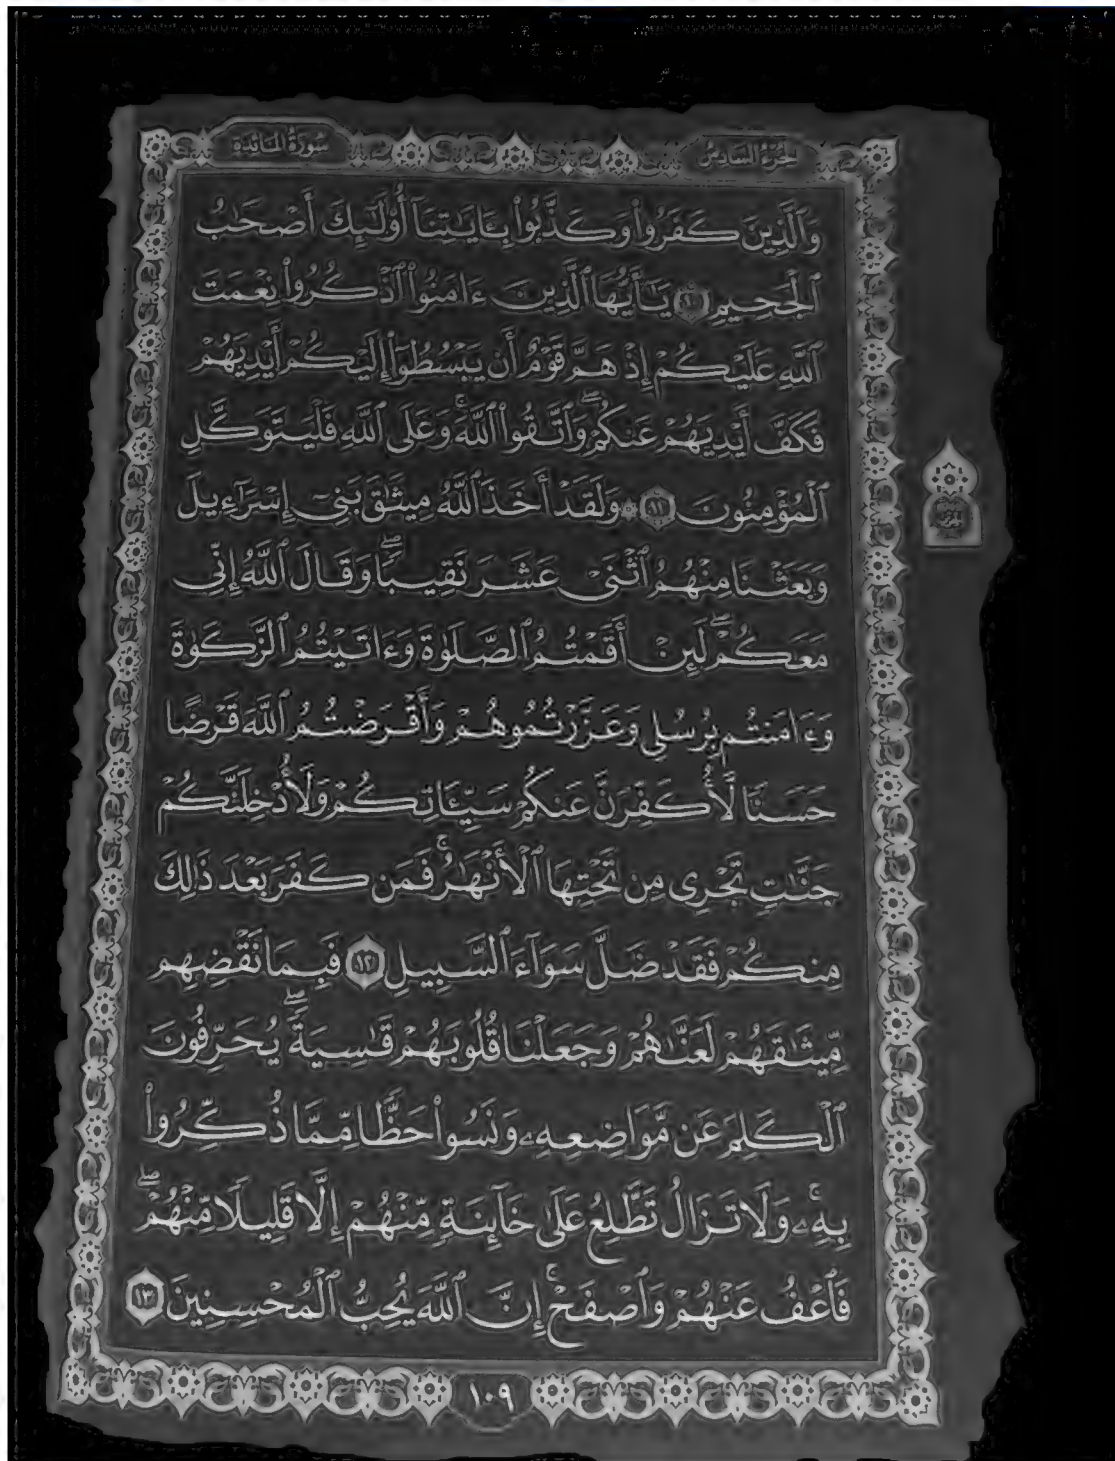 الجزء السادس سورة المائدة
وَٱلَّذِينَ كَفَرُواْ وَكَذَّبُواْ بِـَٔايَٰتِنَآ أُوْلَٰٓئِكَ أَصۡحَٰبُ
ٱلۡجَحِيمِ ١٠ يَٰٓأَيُّهَا ٱلَّذِينَ ءَامَنُواْ ٱذۡكُرُواْ نِعۡمَتَ
ٱللَّهِ عَلَيۡكُمۡ إِذۡ هَمَّ قَوۡمٌ أَن يَبۡسُطُوٓاْ إِلَيۡكُمۡ أَيۡدِيَهُمۡ
فَكَفَّ أَيۡدِيَهُمۡ عَنكُمۡۖ وَٱتَّقُواْ ٱللَّهَۚ وَعَلَى ٱللَّهِ فَلۡيَتَوَكَّلِ
ٱلۡمُؤۡمِنُونَ ١١ ۞ وَلَقَدۡ أَخَذَ ٱللَّهُ مِيثَٰقَ بَنِيٓ إِسۡرَٰٓءِيلَ
وَبَعَثۡنَا مِنۡهُمُ ٱثۡنَيۡ عَشَرَ نَقِيبٗاۖ وَقَالَ ٱللَّهُ إِنِّي
مَعَكُمۡۖ لَئِنۡ أَقَمۡتُمُ ٱلصَّلَوٰةَ وَءَاتَيۡتُمُ ٱلزَّكَوٰةَ
وَءَامَنتُم بِرُسُلِي وَعَزَّرۡتُمُوهُمۡ وَأَقۡرَضۡتُمُ ٱللَّهَ قَرۡضًا
حَسَنٗا لَّأُكَفِّرَنَّ عَنكُمۡ سَيِّـَٔاتِكُمۡ وَلَأُدۡخِلَنَّكُمۡ
جَنَّٰتٖ تَجۡرِي مِن تَحۡتِهَا ٱلۡأَنۡهَٰرُۚ فَمَن كَفَرَ بَعۡدَ ذَٰلِكَ
مِنكُمۡ فَقَدۡ ضَلَّ سَوَآءَ ٱلسَّبِيلِ ١٢ فَبِمَا نَقۡضِهِم
مِّيثَٰقَهُمۡ لَعَنَّٰهُمۡ وَجَعَلۡنَا قُلُوبَهُمۡ قَٰسِيَةٗۖ يُحَرِّفُونَ
ٱلۡكَلِمَ عَن مَّوَاضِعِهِۦ وَنَسُواْ حَظّٗا مِّمَّا ذُكِّرُواْ
بِهِۦۚ وَلَا تَزَالُ تَطَّلِعُ عَلَىٰ خَآئِنَةٖ مِّنۡهُمۡ إِلَّا قَلِيلٗا مِّنۡهُمۡۖ
فَٱعۡفُ عَنۡهُمۡ وَٱصۡفَحۡۚ إِنَّ ٱللَّهَ يُحِبُّ ٱلۡمُحۡسِنِينَ ١٣
١٠٩